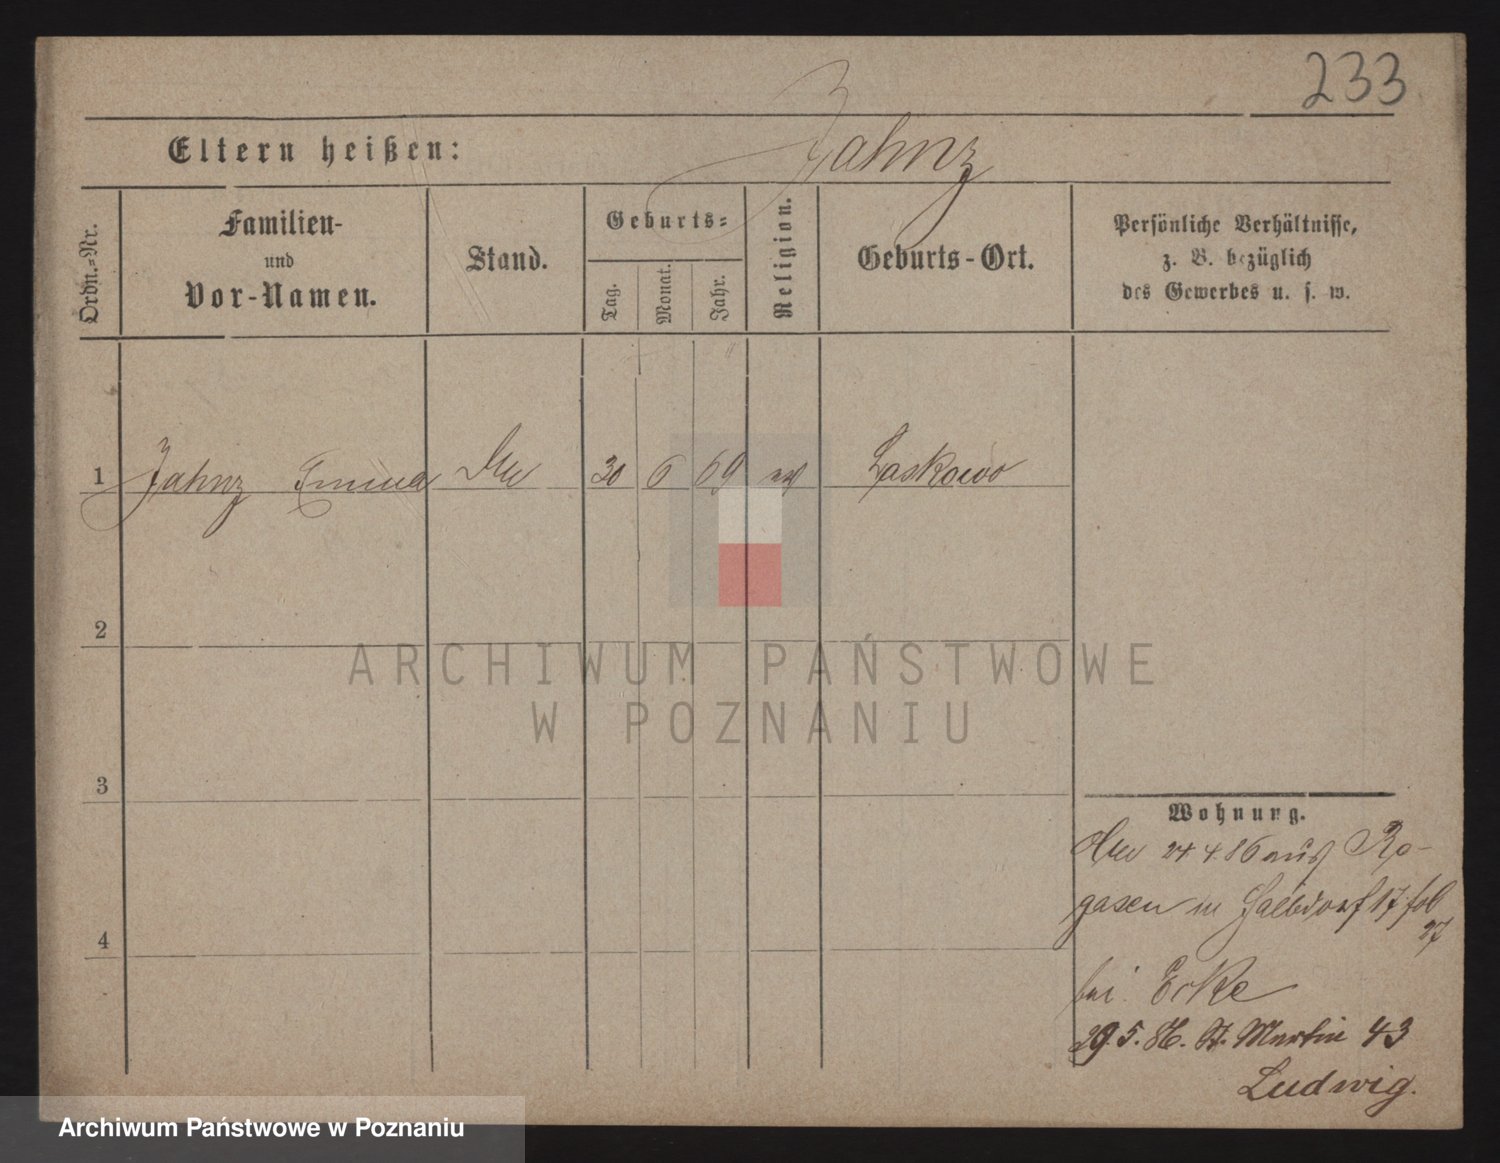 233
Eltern heißen: Jahnz
Ordn.-Nr.
Familien-
und
Vor-Namen.
Stand.
Geburts=
Tag.
Monat.
Jahr.
Religion.
Geburts-Ort.
Persönliche Verhältnisse,
z. B. bezüglich
des Gewerbes u. s. w.
1 Jahnz Emma 30 6 69 ev Laskowo
2
3
4
Wohnung.
4 86 aus Ro-
gasen in Halbdorf 17 fol
27
bei Ecke
29 5. St. Martin 43
Ludwig.
ARCHIWUM PAŃSTWOWE
W POZNANIU
Archiwum Państwowe w Poznaniu